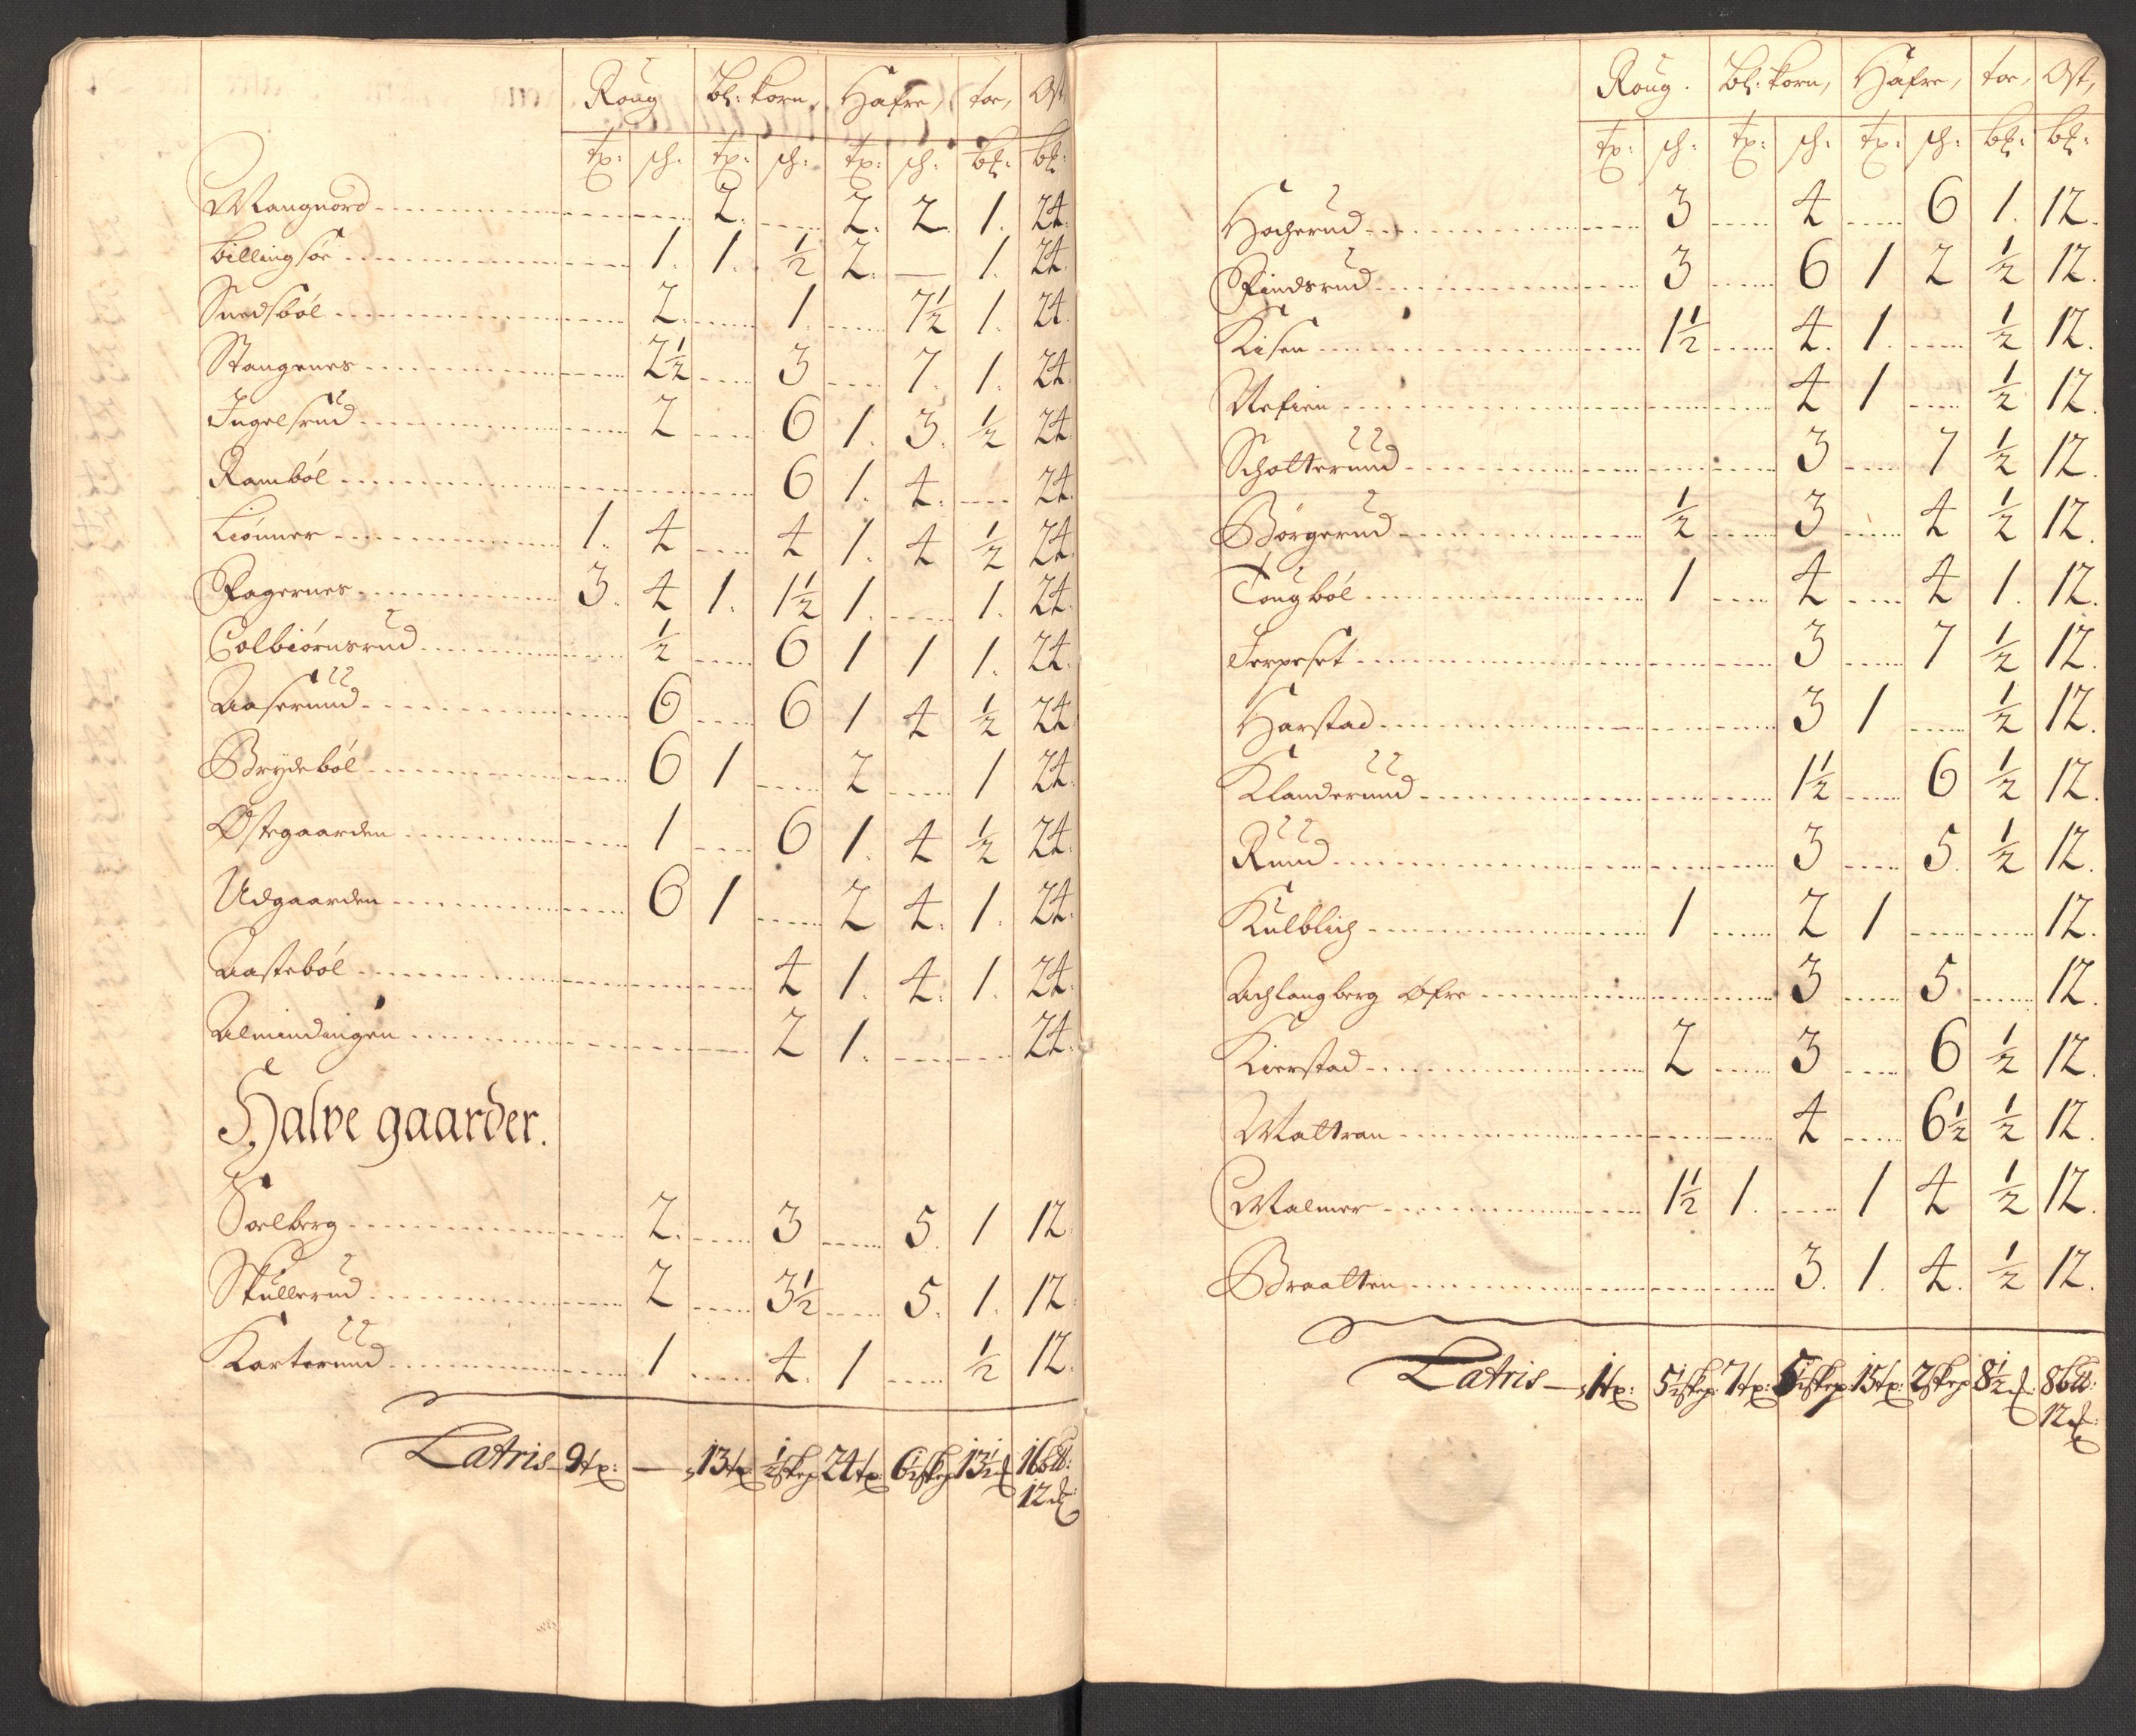 Roug bl: korn, Hafre, toe, Ost
tr: sch: tr: sch: tr: sch: bl: bl:
Mangnord 2. 2. 2. 1. 24.
billingsøe 1. 1. ½ 2. — 1. 24.
Snedsbøl 2. 1. 7½ 1. 24.
Stangenes 2½ 3 7. 1. 24.
Ingelsrud 2 6 1. 3. ½ 24.
Rambøl 6 1. 4. 24.
Liønner 1. 4 4 1. 4 ½ 24.
Fagernes 3. 4 1. 1½ 1. 1. 24.
Colbiørnsrud ½ 6 1 1 1. 24.
Aaseruud 6 6 1 4 ½ 24
Brydebøl 6 1 2 1 24.
Østegaarden 1 6 1. 4 ½ 24.
Udgaarden 6 1 2 4. 1. 24.
Aastebøl 4 1. 4. 1. 24.
Almindingen 2 1. 24.
Halve gaarder.
Soelberg 2. 3 5. 1 12
Skullerud 2 3½ 5. 1. 12.
Karteruud 1 4. 1 ½ 12.
Latris 9tr: — 13tr ½skep 24tr 6½skep 13½ 16bll:
12
Roug. bl: korn, Hafre, toe, Ost,
tr: sch: tr: sch: tr: sch: bl: bl:
Hocherud 3 4 6 1. 12.
Findsrud 3 6 1 2 ½ 12.
Kisen 1½ 4. 1. ½ 12.
Nefien 4 1 ½ 12.
Scholteruud 3 7 ½ 12.
Børgerud ½ 3 4 ½ 12.
Tougbøl 1 4 4 1. 12.
Jerpeset 3 7 ½ 12.
Harstad 3 1 ½ 12.
Klanderuud 1½ 6 ½ 12.
Ruud 3 5. ½ 12.
Kulblich 1 2 1 12.
Achlangberg øfre 3 5. 12.
Kierstad 2 3 6 ½ 12.
Maltran 4 6½ ½ 12.
Malmer 1½ 1. 1 4 ½ 12.
Braatten 3. 1. 4. ½ 12.
Latris 1tr: 5½skep 7tr: 5½skep 15tr: 2skep 8½ 8bll:
12